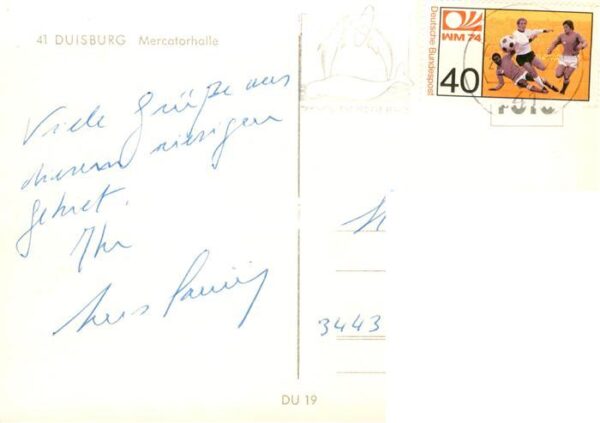 41 DUISBURG Mercatorhalle
Deutsche Bundespost
WM 74
40
Viele Grüße aus
diesem riesigen
Gebiet.
Ihr
3443
DU 19